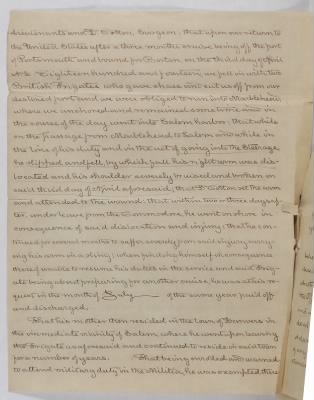 Lieutenants and D. Cotton, Surgeon; that upon our return to
the United States after a three months cruise being off the port
of Portsmouth and bound for Boston, on the third day of April
A.D. Eighteen hundred and fourteen, we fell in with two
British Frigates who gave chase and cut us off from our
desired port and we were obliged to run into Marblehead
where we anchored and remained some time and in
the course of the day went into Salem harbor; that while
on the passage from Marblehead to Salem and while in
the line of his duty and in the act of going into the Steerage,
he slipped and fell, by which fall his right arm was dis-
located and his shoulder severely bruised and broken on
said third day of April aforesaid, that D. Cotton set the arm
and attended to the wound: that within two or three days af-
ter, under leave from the Commodore, he went on shore in
consequence of said dislocation and injury; that he con-
tinued for several months to suffer severely from said injury carry-
ing his arm in a sling; when finding himself in consequence
thereof unable to resume his duties in the service and said Frig-
ate being about preparing for another cruise, he was at his re-
quest in the month of July of the same year paid off
and discharged,
That his mother then resided in the town of Danvers in
the immediate vicinity of Salem, where he went upon leaving
the Frigate as aforesaid and continued to reside in said town
for a number of years. That being enrolled and warned
to attend military duty in the Militia, he was exempted there